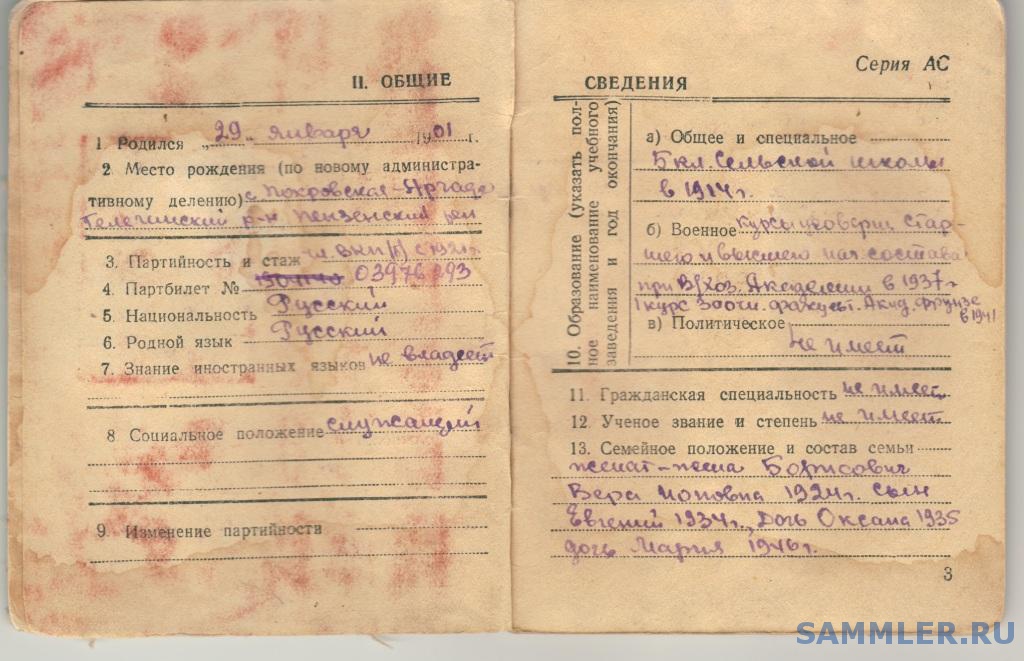 II. ОБЩИЕ
1. Родился „29" января 1901 г.
2. Место рождения (по новому администра-
тивному делению) с Покровская-Аргада
Телегинский р-н Пензенский
3. Партийность и стаж чл. ВКП(б) с 1921г
4. Партбилет № 03976293
5. Национальность Русский
6. Родной язык Русский
7. Знание иностранных языков не владеет
8 Социальное положение служащий
9. Изменение партийности
Серия АС
СВЕДЕНИЯ
10. Образование (указать пол-
ное наименование учебного
заведения и год окончания)
а) Общее и специальное
5 кл. Сельской школы
в 1914 г.
б) Военное курсы усоверш. Стар-
шего и высшего нач. состава
при В/хоз. Академии в 1937 г
1 курс Заочн. факульт. Акад. Фрунзе
в 1941
в) Политическое
Не имеет
11. Гражданская специальность не имеет
12. Ученое звание и степень не имеет
13. Семейное положение и состав семьи
женат-жена Борисович
Вера 1924 г. сын
Евгений 1934 г., Дочь Оксана 1935
дочь Мария 1946 г.
3
SAMMLER.RU